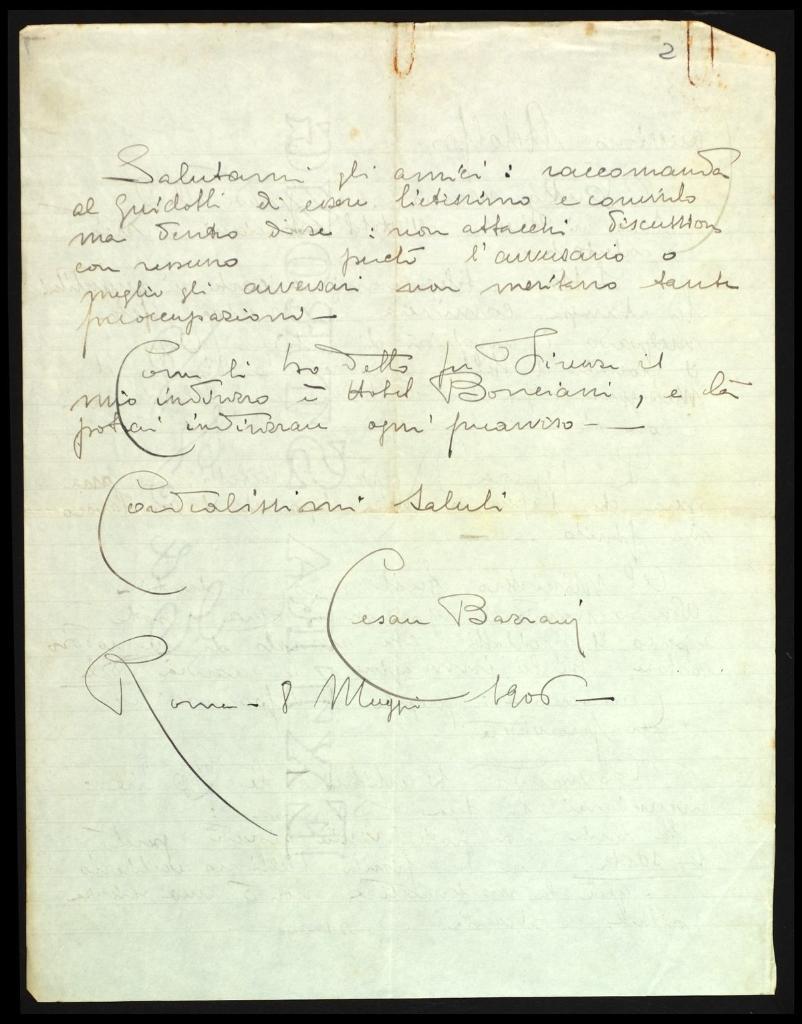 2
Salutami gli amici: raccomanda
al Guidotti di essere lietissimo e convinto
ma dentro di se: non attacchi discussioni
con nessuno perchè l'avversario o
meglio gli avversari non meritano tante
preoccupazioni—
Come ti ho detto per Firenze il
mio indirizzo è Hotel Bonciani, e là
potrai indirizzare ogni preavviso—
Cordialissimi saluti
Cesare
Roma - 8 Maggio 1906—